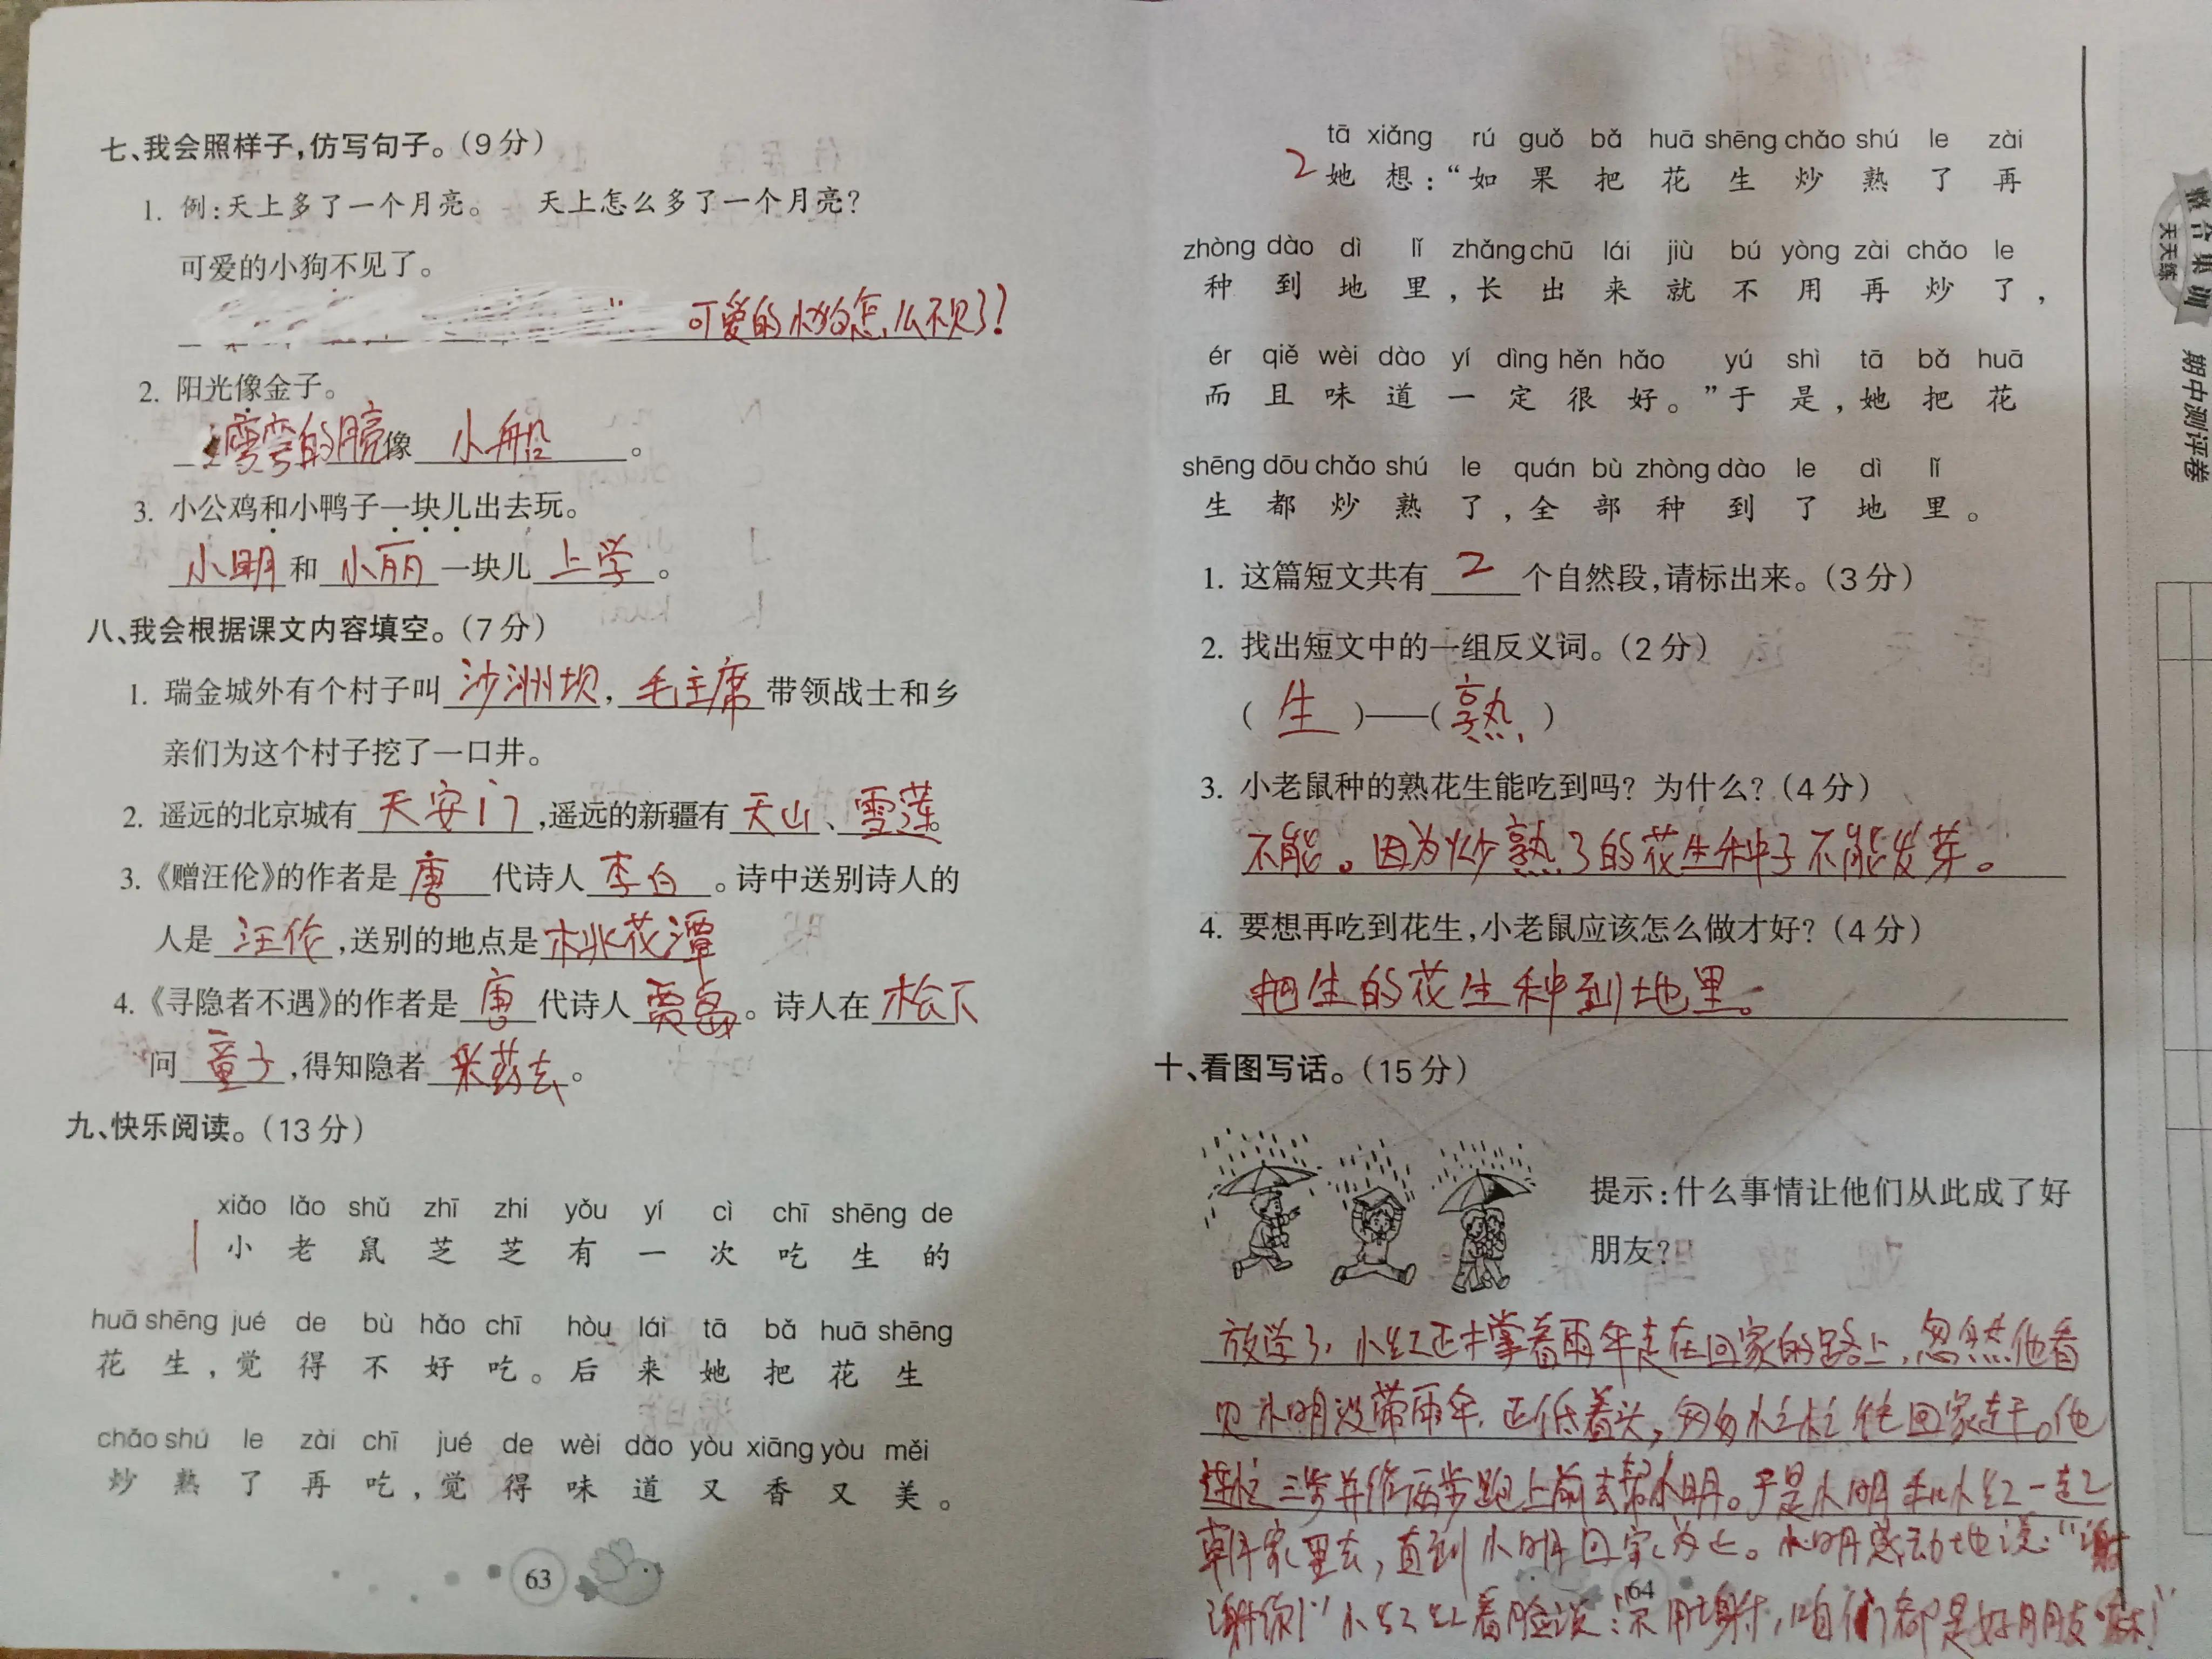 七、我会照样子,仿写句子。(9分)
1. 例:天上多了一个月亮。 天上怎么多了一个月亮?
可爱的小狗不见了。
可爱的小狗怎么不见了?
2. 阳光像金子。
弯弯的月亮像 小船 。
3. 小公鸡和小鸭子一块儿出去玩。
小明 和 小丽 一块儿 上学 。
八、我会根据课文内容填空。(7分)
1. 瑞金城外有个村子叫 沙洲坝 , 毛主席 带领战士和乡
亲们为这个村子挖了一口井。
2. 遥远的北京城有 天安门 ,遥远的新疆有 天山 、 雪莲 。
3.《赠汪伦》的作者是 唐 代诗人 李白 。诗中送别诗人的
人是 汪伦 ,送别的地点是 桃花潭
4.《寻隐者不遇》的作者是 唐 代诗人 贾岛 。诗人在 松下
问 童子 ,得知隐者 采药去 。
九、快乐阅读。(13分)
xiǎo lǎo shǔ zhī zhi yǒu yí cì chī shēng de
1 小老鼠芝芝有一次吃生的
huā shēng jué de bù hǎo chī hòu lái tā bǎ huā shēng
花生,觉得不好吃。后来她把花生
chǎo shú le zài chī jué de wèi dào yòu xiāng yòu měi
炒熟了再吃,觉得味道又香又美。
63
tā xiǎng rú guǒ bǎ huā shēng chǎo shú le zài
2 她想:“如果把花生炒熟了再
zhòng dào dì lǐ zhǎng chū lái jiù bú yòng zài chǎo le
种到地里,长出来就不用再炒了,
ér qiě wèi dào yí dìng hěn hǎo yú shì tā bǎ huā
而且味道一定很好。”于是,她把花
shēng dōu chǎo shú le quán bù zhòng dào le dì lǐ
生都炒熟了,全部种到了地里。
1. 这篇短文共有 2 个自然段,请标出来。(3分)
2. 找出短文中的一组反义词。(2分)
( 生 )——( 熟 )
3. 小老鼠种的熟花生能吃到吗? 为什么?(4分)
不能。因为炒熟了的花生种子不能发芽。
4. 要想再吃到花生,小老鼠应该怎么做才好?(4分)
把生的花生种到地里。
十、看图写话。(15分)
提示:什么事情让他们从此成了好
朋友?
放学了,小红正掌着雨伞走在回家的路上,忽然他看
见小明没带雨伞,正低着头,匆匆忙忙往回家赶。他
连忙三步并作两步跑上前去帮小明。于是小明和小红一起
朝家里去,直到小明回家为止。小明感动地说:“谢
谢你!”小红红着脸说:“不用谢,咱们都是好朋友嘛!”
64
整合集训
天天练
期中测评卷